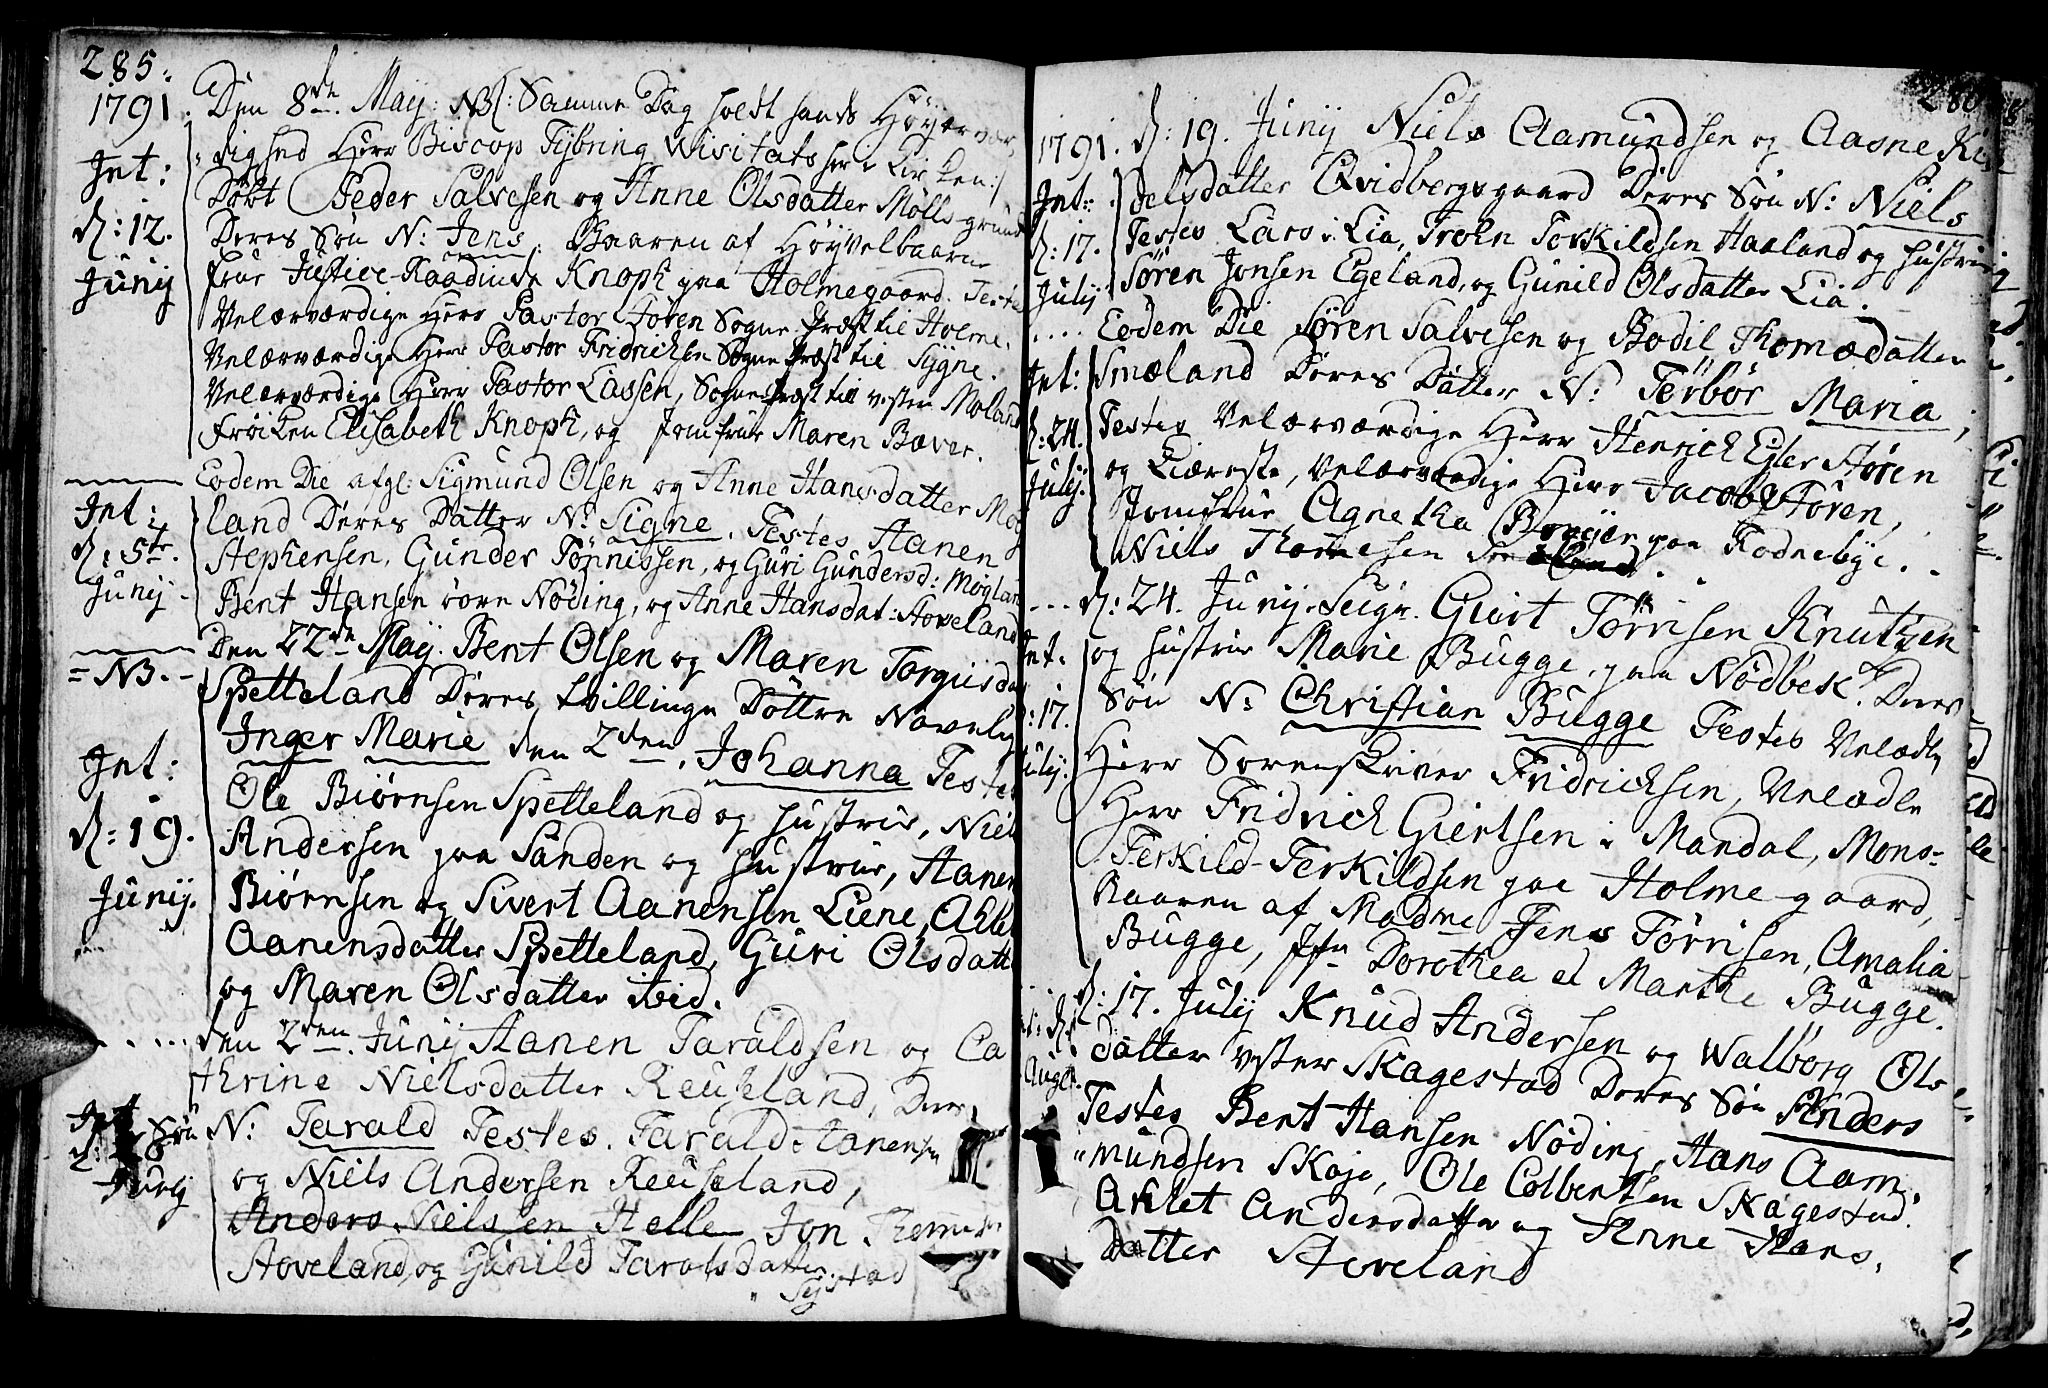 285.
1791.
Den 8de May. NB: Samme Dag holdt hands Höyærvær,
dighed Herr Biscop Tybring Wisitats her i Kirken:/
Int:
Döbt Peder Salvesen og Anne Olsdatter Mölls-grund
d: 12.
Deres Sön N: Jens. Baaren af Höyvelbaarne
Junij
Frue Justice-Raadinde Knoph paa Holmegaard. Teste
Velærværdige Herr Pastor Støren Sogne Præst til Holme.
Velærværdige Herr Pastor Fridrichsen Sogne Præst til Sygne.
Velærværdige Herr Pastor Lassen, Sogne Præst til vester Moland
Fröiken Elisabeth Knoph, og Jomfrue Maren Bæver.
Eodem Die afgl: Sigmund Olsen og Anne Hansdatter Møg
Int:
land Deres Datter N: Signe. Testes Aanen
d: 5te.
Stephensen, Gunder Tønnissen, og Guri Gundersd: Møgland
Junij
Bent Hansen Nöding, og Anne Hansdat: Hoveland
Den 22de May. Bent Olsen og Maren Torgiusda
= NB. -
Spetteland Deres tvillinge Döttre Navnlig
Inger Marie den 2den. Johanna Testes
Int:
Ole Biörnsen Spetteland og Hustrue, Niels
d: 19.
Andersen paa Sanden og Hustrue, Aanen
Junij.
Biörnsen og Sivert Aanensen Liene,
Aanensdatter Spetteland, Guri Olsdatt
og Maren Olsdatter ibid.
den 2den. Junij Aanen Taraldsen og Ca
thrine Nielsdatter Reuseland, Deres
Int
Sön N: Tarald Testes. Tarald Aanensen
og Niels Andersen Reuseland,
Anders Nielsen Helle Jon
Hoveland, og Gunild Taralsdatter

1791. d: 19. Junij Niels Aamundsen og Aasne
Int:
delsdatter Qvidbergsgaard Deres Sön N: Niels
d: 17.
Testes Lars i Lia, Troln Torkildsen Haaland og Hustrue
July
Sören Jonsen Egeland, og Gunild Olsdatter Lia.
Eodem Die Sören Salvesen og Bodil Thomædatter
Int:
Smæland Deres Datter N: Terbör Maria,
d: 24.
Testes Velærværdige Herr Henrich Støren
July.
og Kiæreste, Velærværdige Herr Jacob Støren,
Jomfrue Agnetha paa Fodnebye.
Niels Thomesen
d: 24. Junij. Seigr. Giert Törrisen Knutzen
Int.
og Hustrue Marie Bugge, paa Nödbek. Deres
17.
Sön N: Christian Bugge Testes Velædle
July.
Herr Sorenskriver Fridrichsen, Velædle
Herr Fridrich Giertsen i Mandal, Mons-
Terkild Terkildsen paa Holme-gaard,
Baaren af Madme Jens Törrisen, Amalia
Bugge, Jfr Dorothea et Marthe Bugge.
d: 17. July Knud Andersen og Walborg Ols
datter vester Skagestad Deres Sön Anders
Testes Bent Hansen Nöding, Hans Aam,
mundsen Skaje, Ole Colbentsen Skagestad.
Ahlet Andersdatter og Anne Hans,
datter Hoveland